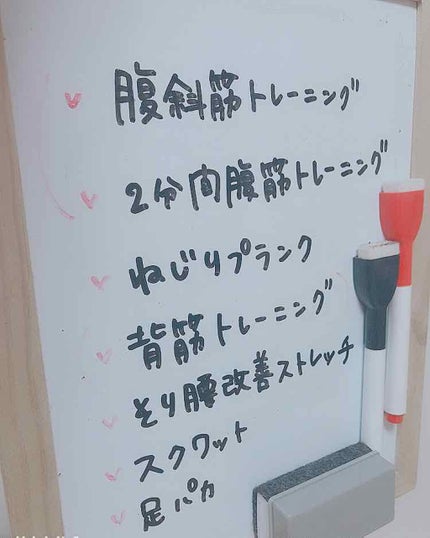 腹斜筋トレーニング
2分間腹筋トレーニング
ねじりプランク
背筋トレーニング
そり腰改善ストレッチ
スクワット
足パカ